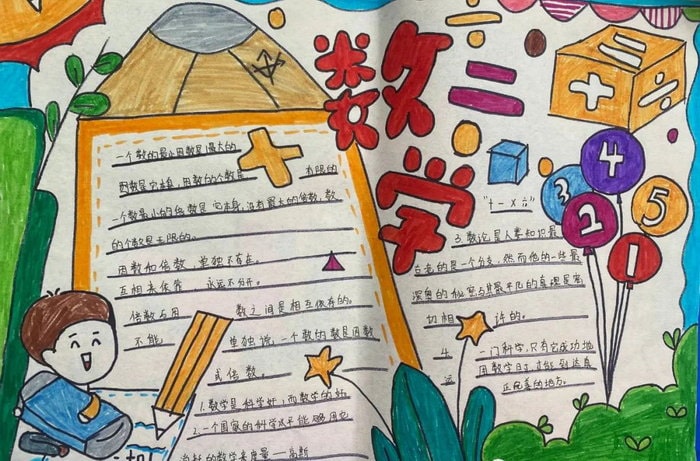 数学
一个数的最小因数是最大的
因数是它本身，因数的个数是 有限的
一个数最小的倍数是它本身，没有最大的倍数，数
的个数是无限的。
因数和倍数，单独不存在。
互相来依靠 永远不分开。
倍数与因 数之间是相互依存的。
不能 单独说，一个数的数是因数
或倍数。
1.数学是科学
2.一个国家的科学水平能够用它
的数学来度量
"+-×÷"
3.数论是人类知识最
古老的是一个分支，然而他的一些最
深奥的秘密与其最平凡的真理是密
切相 许的。
4. 一门科学，只有它成功地
用数学时，才能到达真
正完善的地方。
+
÷
=
4
3
2
5
1